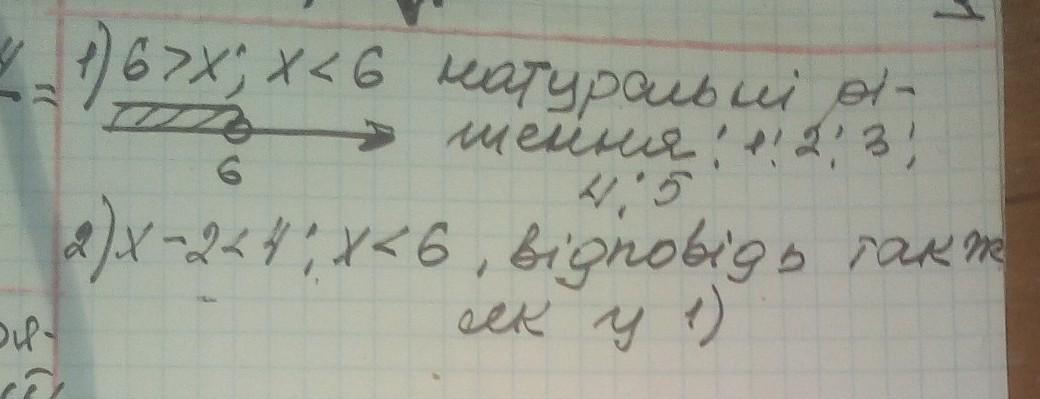 1) 6 > x; x < 6 натуральні
шення: 1; 2; 3;
6
4; 5
2) x - 2 < 4; x < 6, відповідь такж
як у 1)